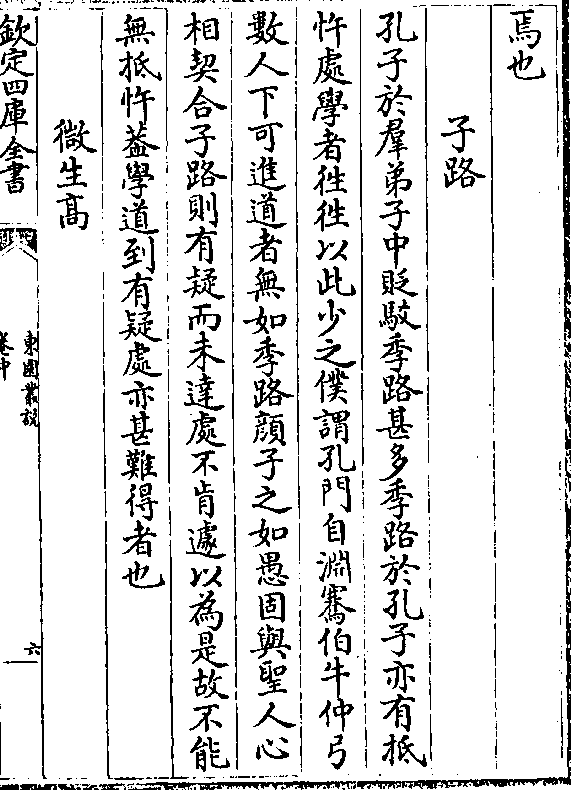 焉也
子路
孔子於羣弟子中貶駁季路甚多季路於孔子亦有抵
忤處學者徃徃以此少之僕謂孔門自淵騫伯牛仲弓
數人下可進道者無如季路顔子之如愚固與聖人心
相契合子路則有疑而未達處不肯遽以為是故不能
無抵忤葢學道到有疑處亦甚難得者也
微生髙
欽定四庫全書
東園叢説
卷中
六